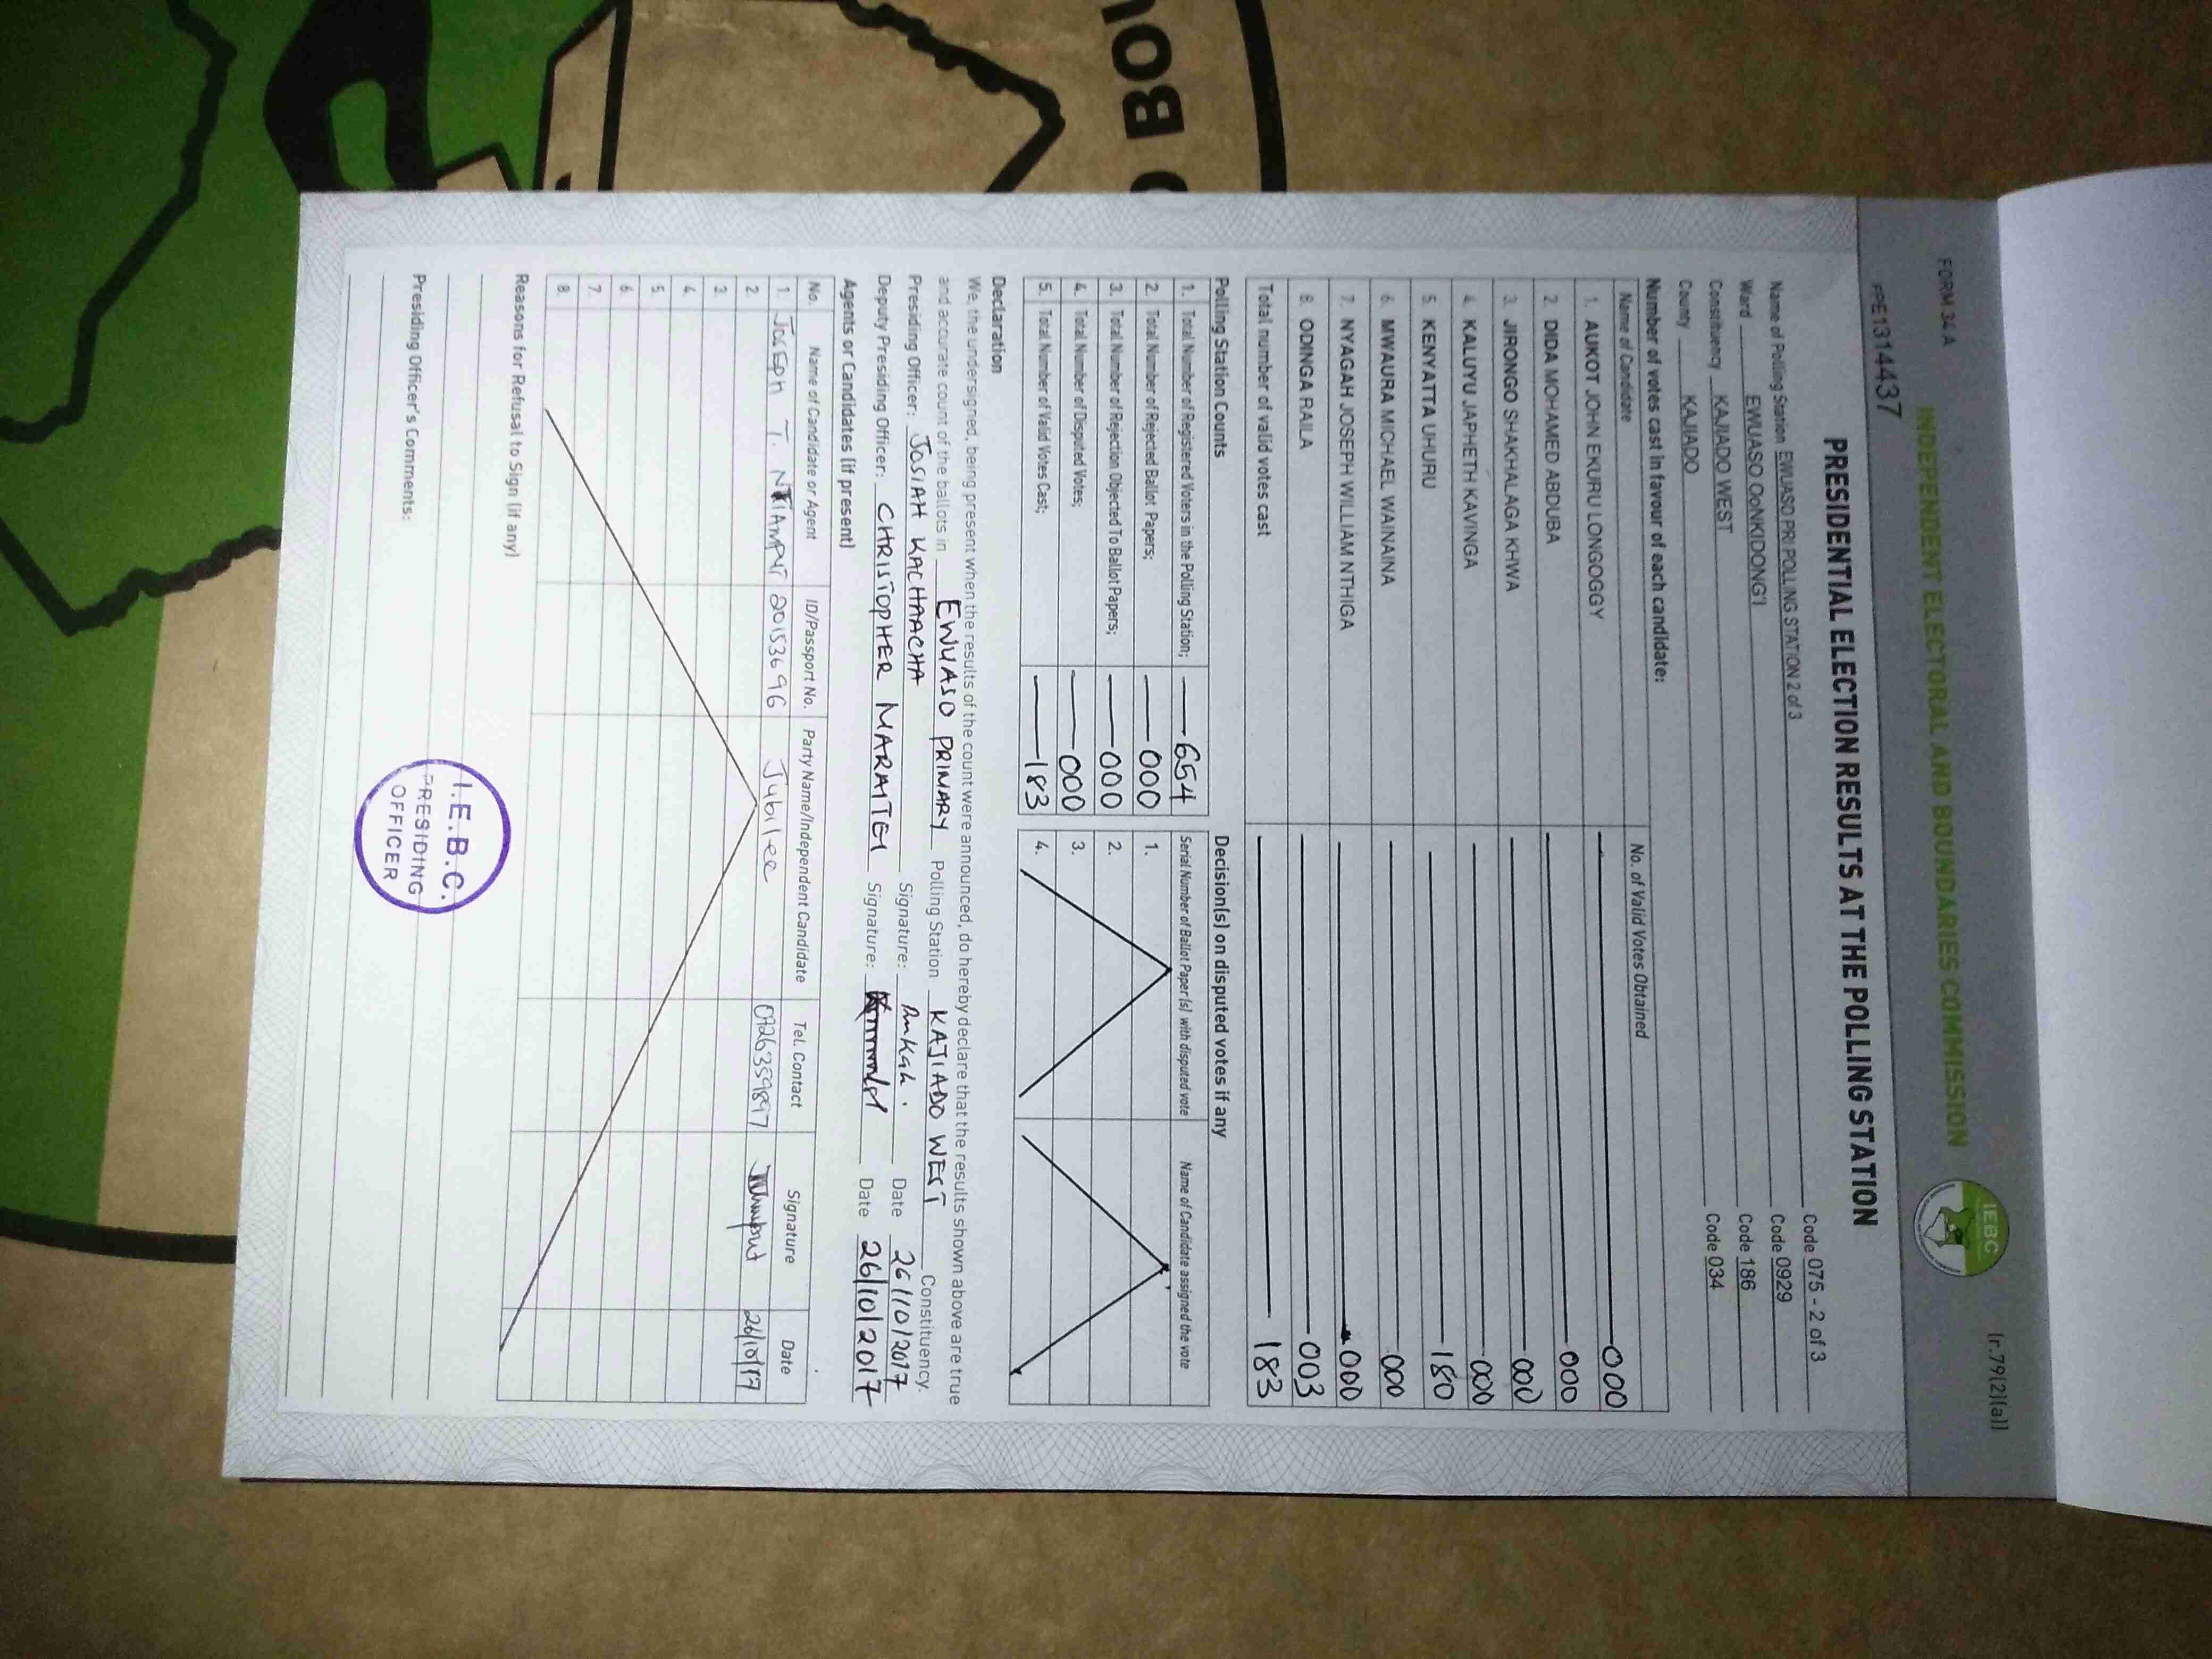 FORM 34 A
(r.79(2)(a))
INDEPENDENT ELECTORAL AND BOUNDARIES COMMISSION
IEBC
PPE1314437
PRESIDENTIAL ELECTION RESULTS AT THE POLLING STATION
Name of Polling Station EWUASO PRI POLLING STATION 2 of 3 Code 075 - 2 of 3
Ward EWUASO OoNKIDONG'I Code 0929
Constituency KAJIADO WEST Code 186
County KAJIADO Code 034
Number of votes cast in favour of each candidate:
Name of Candidate No. of Valid Votes Obtained
1. AUKOT JOHN EKURU LONGOGGY 000
2. DIDA MOHAMED ABDUBA 000
3. JIRONGO SHAKHALAGA KHWA 000
4. KALUYU JAPHETH KAVINGA 000
5. KENYATTA UHURU 180
6. MWAURA MICHAEL WAINAINA 000
7. NYAGAH JOSEPH WILLIAM NTHIGA 000
8. ODINGA RAILA 003
Total number of valid votes cast 183
Polling Station Counts
1. Total Number of Registered Voters in the Polling Station; 654
2. Total Number of Rejected Ballot Papers; 000
3. Total Number of Rejection Objected To Ballot Papers; 000
4. Total Number of Disputed Votes; 000
5. Total Number of Valid Votes Cast; 183
Decision(s) on disputed votes if any
Serial Number of Ballot Paper (s) with disputed vote Name of Candidate assigned the vote
1.
2.
3.
4.
Declaration
We, the undersigned, being present when the results of the count were announced, do hereby declare that the results shown above are true
and accurate count of the ballots in EWUASO PRIMARY Polling Station KAJIADO WEST Constituency.
Presiding Officer: JOSIAH KACHAACHA Signature: Date 26/10/2017
Deputy Presiding Officer: CHRISTOPHER MARAITEI Signature: Date 26/10/2017
Agents or Candidates (if present)
No. Name of Candidate or Agent ID/Passport No. Party Name/Independent Candidate Tel. Contact Signature Date
1. JOSEPH T. 20153696 Jubilee 0726359897 26/10/17
2.
3.
4.
5.
6.
7.
8.
Reasons for Refusal to Sign (if any)
Presiding Officer's Comments:
I.E.B.C.
PRESIDING
OFFICER
BOU